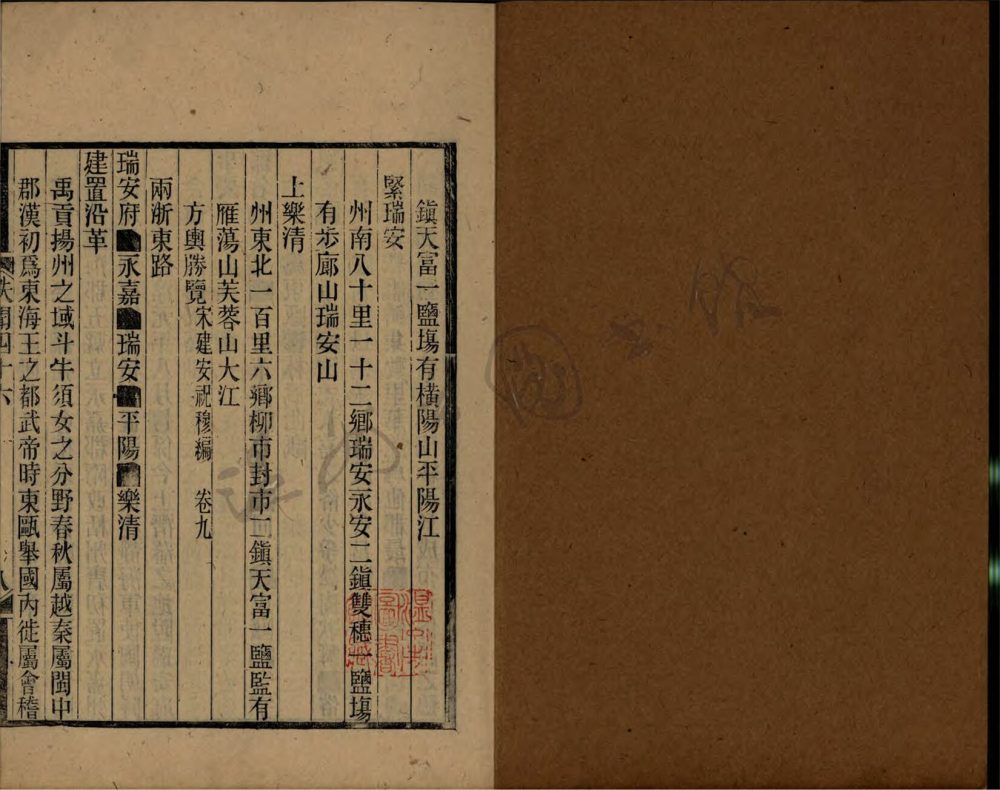 鎭天富一鹽塲有橫陽山平陽江
緊瑞安
州南八十里一十二鄉瑞安永安二鎭雙穗一鹽塲
有步廊山瑞安山
上樂清
州東北一百里六鄉柳市封市二鎭天富一鹽監有
雁蕩山芙蓉山大江
方輿勝覽宋建安祝穆編 卷九
兩浙東路
瑞安府 永嘉 瑞安 平陽 樂清
建置沿革
禹貢揚州之域斗牛須女之分野春秋屬越秦屬閩中
郡漢初爲東海王之都武帝時東甌舉國內徙屬會稽
四十六 八